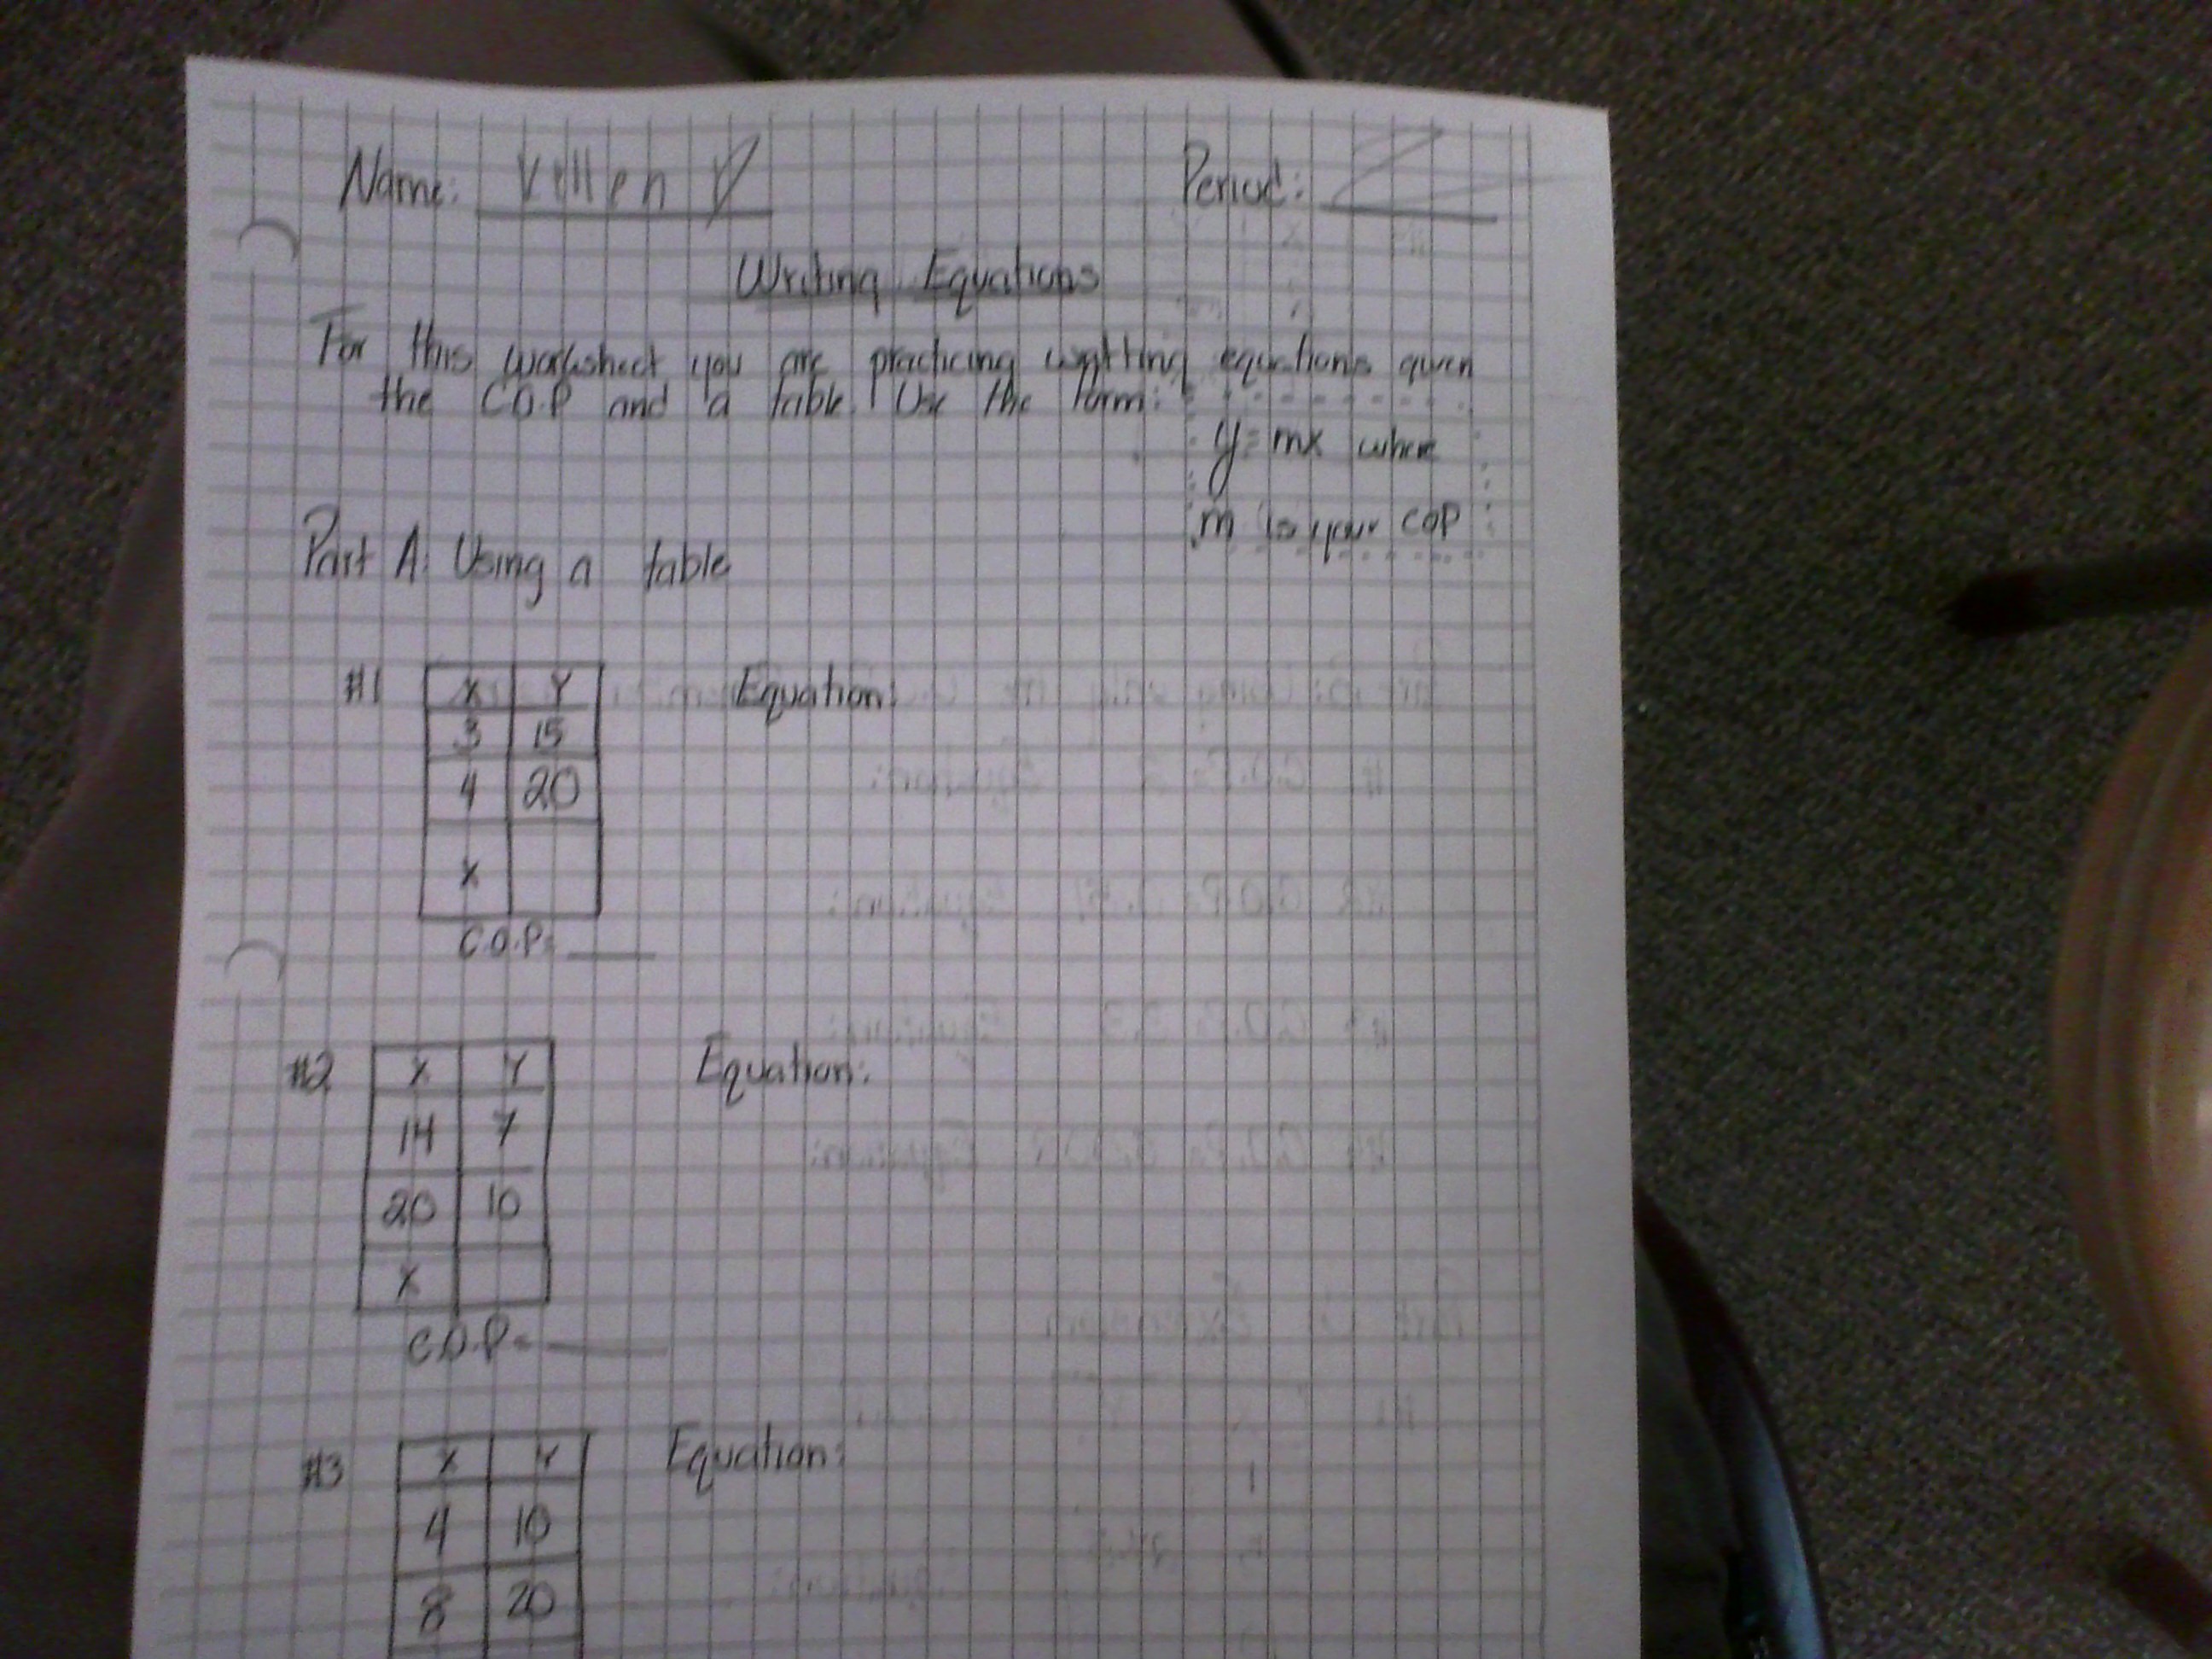 Name: Period:
Writing Equations
For this worksheet you are practicing writting equations given
the C.O.P and a table. Use the form:
y=mx where
m is your COP
Part A: Using a table
#1 X Y Equation:
3 15
4 20
X
C.O.P=
#2 X Y Equation:
14 7
20 10
X
C.O.P=
#3 X Y Equation:
4 10
8 20